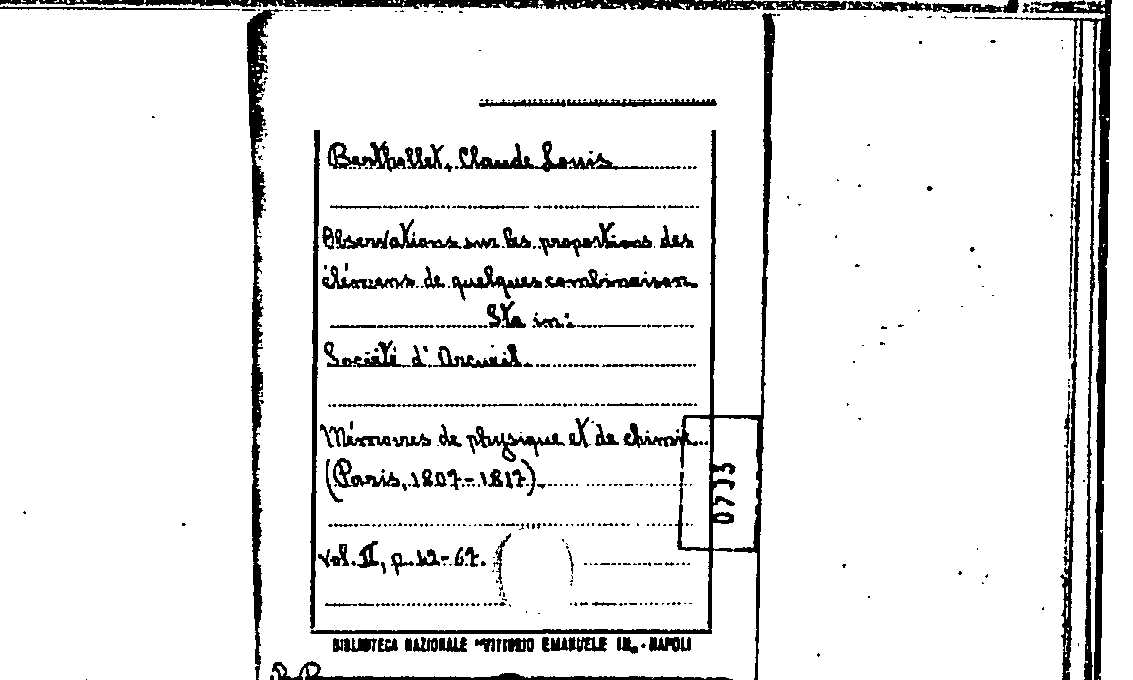 Berthollet, Claude Louis
Observations sur les proportions des
élémens de quelques combinaison
Sta in:
Société d'Arcueil
Mémoires de physique et de chimie...
(Paris, 1807-1817)
0733
vol. II, p. 42-67.
BIBLIOTECA NAZIONALE "VITTORIO EMANUELE III" - NAPOLI